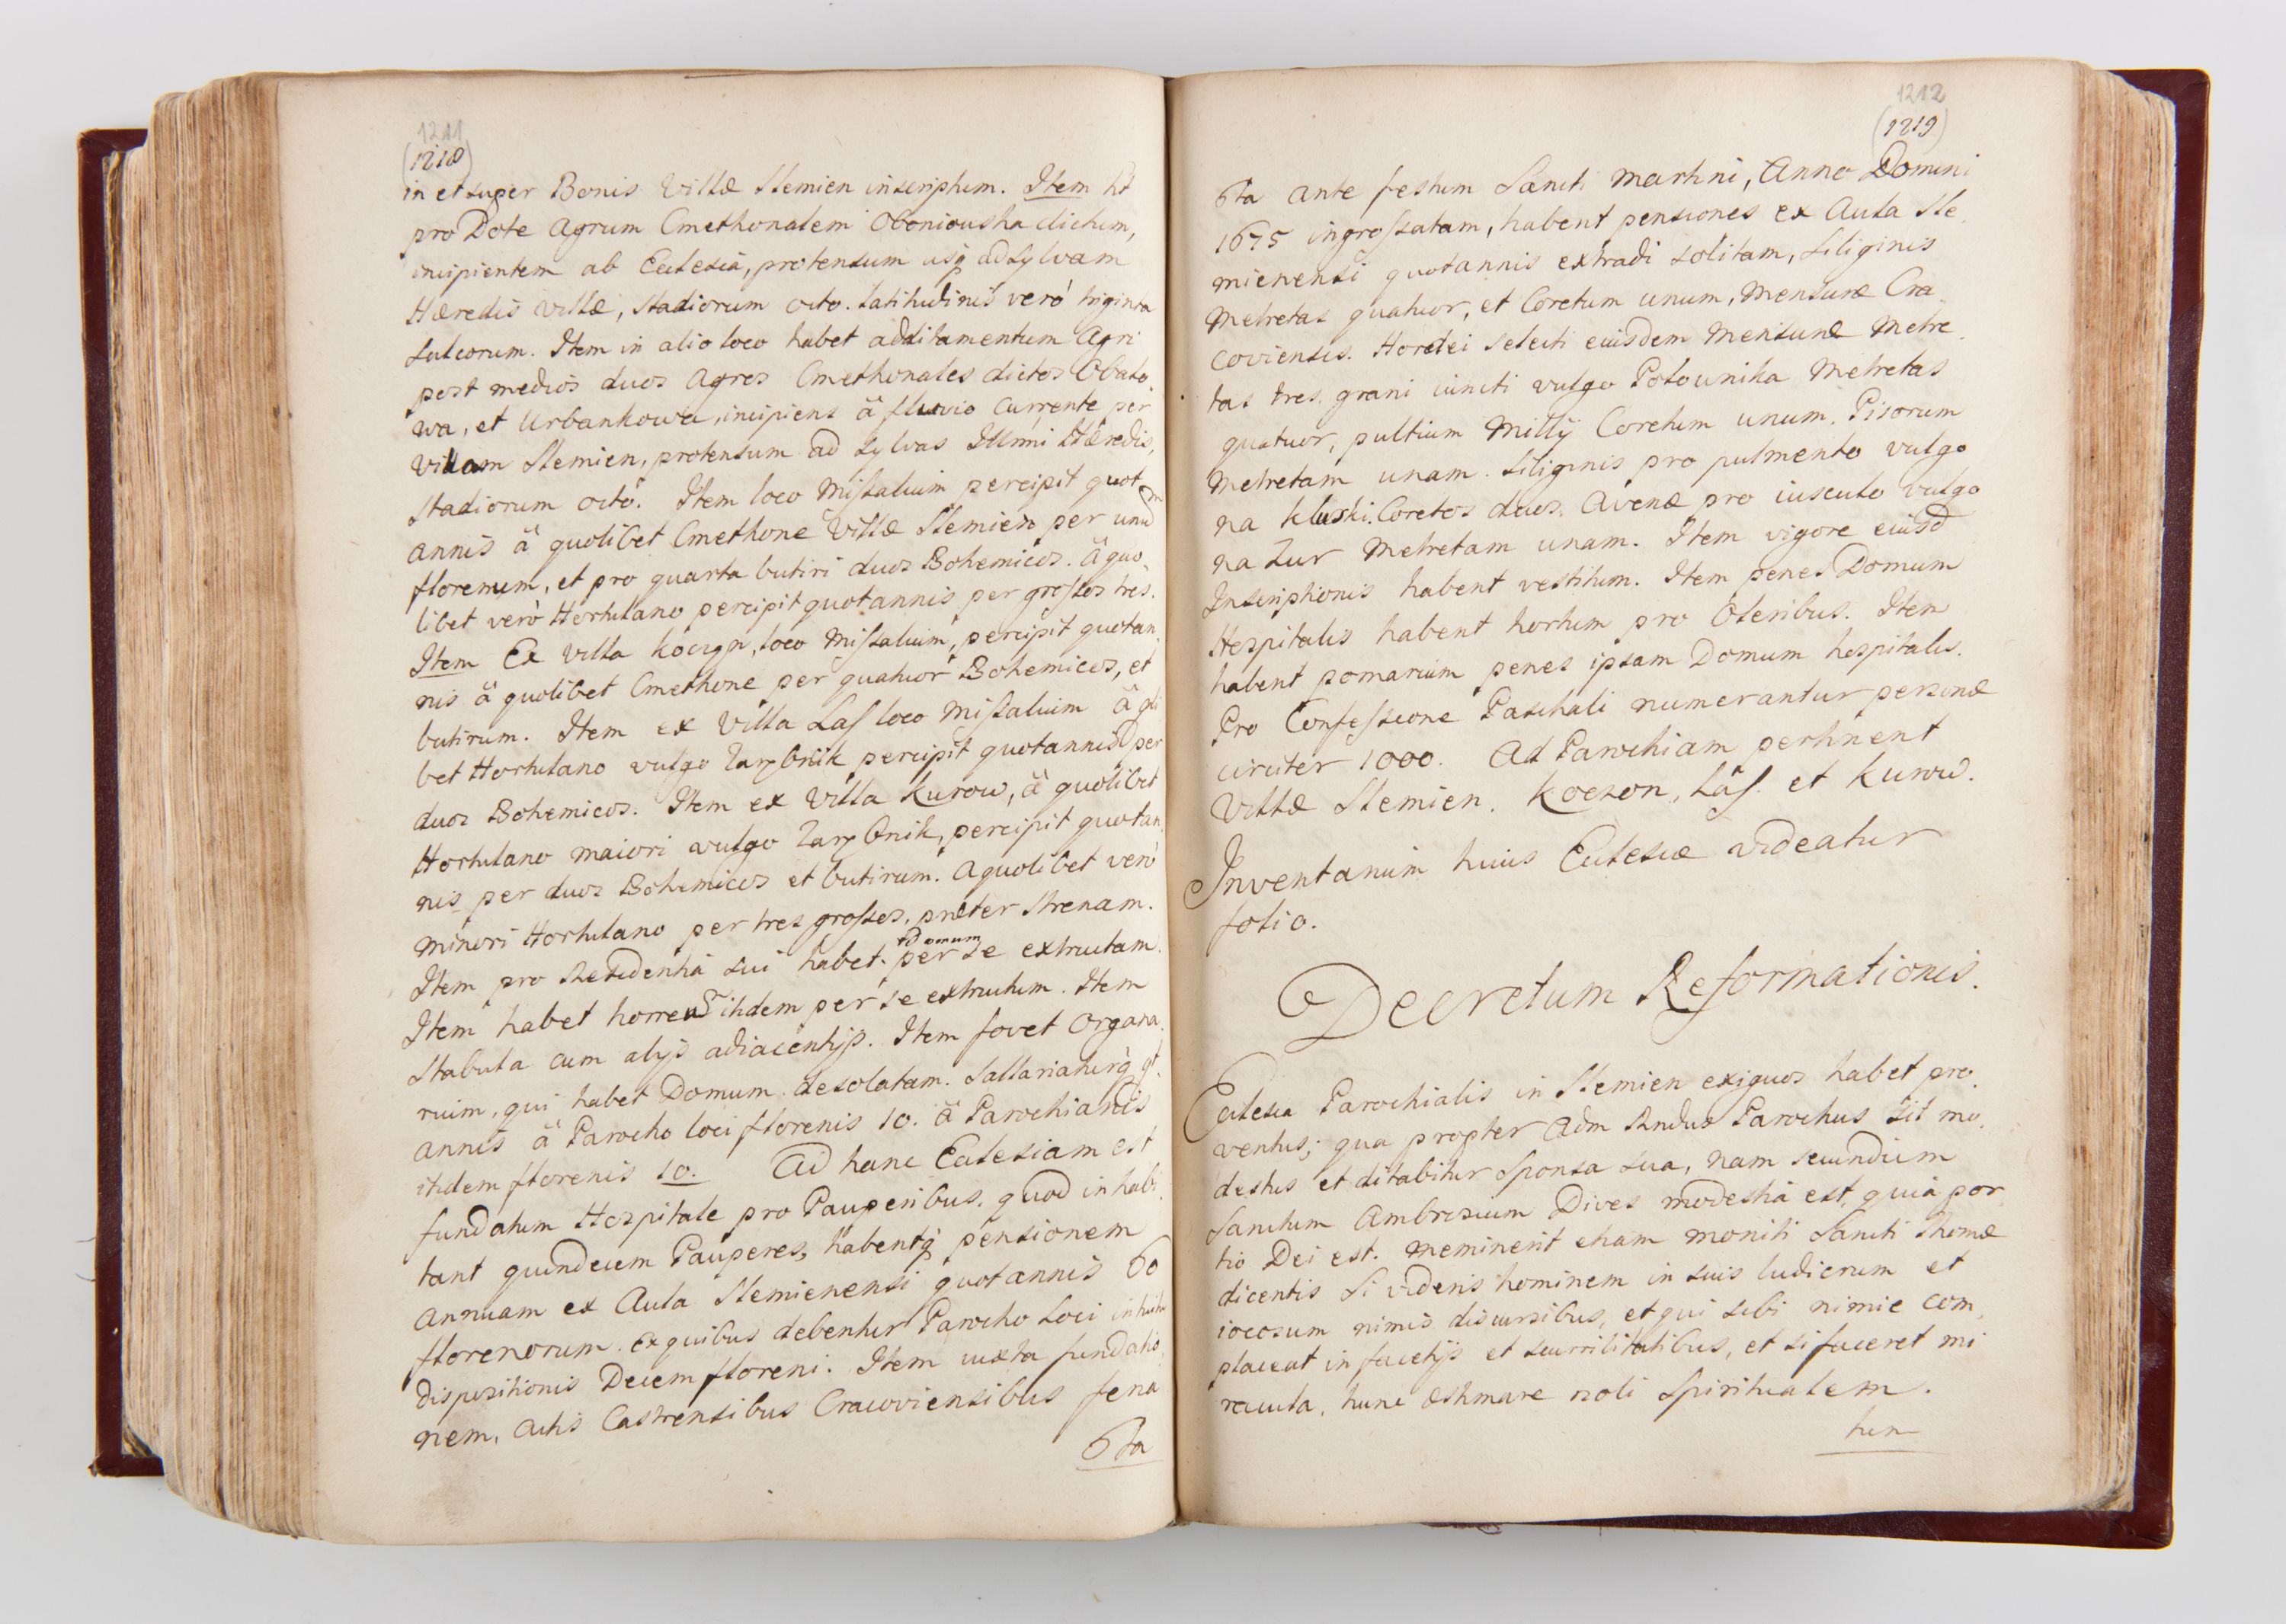 1211
(1218)
in et super Bonis Villæ Slemien inscriptum. Item ht
pro Dote Agrum Cmethonalem Oboniouska dictum,
incipientem ab Ecclesiâ, protensum usq adsylvam
Hæredis villæ, stadiorum octo. latitudinis verò triginta
sulcorum. Item in alio loco habet additamentum Agri
post medios duos Agros Cmethonales dictos Obato
wa, et Urbankowa, incipiens â fluvio currente per
villam Slemien, protensum ad sylvas Illmi Hæredis,
stadiorum octo. Item loco Missalium percipit quot
annis â quolibet Cmethone villæ Slemien per unũ
florenum, et pro quarta butiri duos Bohemicos. â quo
libet verò Hortulano percipit quotannis per grossos tres.
Item Ex villa loco Missalium, percipit quotan
nis â quolibet Cmethone per quatuor Bohemicos, et
butirum. Item ex Villa Las loco Missalium â qli
bet Hortulano vulgo Zarębnik percipit quotannis per
duos Bohemicos. Item ex Villa Kurow, â quolibet
Hortulano maiori vulgo Zarębnik, percipit quotan
nis per duos Bohemicos et butirum. A quolibet verò
minori Hortulano per tres grossos, præter strenam.
Item pro Residentiâ sui habet domum per se extructam.
Item habet horreũ itidem per se extructum. Item
stabula cum alijs adiacentijs. Item fovet Organa
rium, qui habet Domum desolatam. Sallariaturq qt
annis â Parocho loci florenis 10. â Parochianis
itidem florenis 10. Ad hanc Ecclesiam est
fundatum Hospitale pro Pauperibus, quod inhabi
tant quindecem Pauperes, habentq pensionem
annuam ex Aula Slemienensi quotannis 60
florenorum. ex quibus debentur Parocho loci intuitu
dispositionis Decem floreni. Item iuxta fundatio
nem, Actis Castrensibus Cracoviensibus feria
6ta
1212
(1219)
6ta ante festum Sancti Martini, Anno Domini
1675 ingrossatam, habent pensiones ex Aula Sle
mienensi quotannis extradi solitam, siliginis
Metretas quatuor, et Coretum unum, Mensuræ Cra
coviensis. Hordei selecti eiusdem Mensuræ Metre
tas tres. grani iuncti vulgo Polounika Metretas
quatuor, pultium Milly Coretum unum. Pisorum
Metretam unam. Siliginis pro pulmento vulgo
na kluski. Coretos duos. Avenæ pro iusculo vulgo
na Zur Metretam unam. Item vigore eiusd
Inscriptionis habent vestitum. Item penes Domum
Hospitalis habent hortum pro Oleribus. Item
habent pomarium penes ipsam Domum hospitalis.
Pro Confessione Paschali numerantur personæ
circiter 1000. Ad Parochiam pertinent
Villæ Slemien. Koczon, Las. et Kurow.
Inventarium huius Ecclesiæ videatur
folio.
Decretum Reformationis.
Ecclesia Parochialis in Slemien exiguos habet pro
ventus; qua propter Adm Rndus Parochus sit mo
destus et ditabitur Sponsa sua, nam secundum
Sanctum Ambrosium Dives modestia est, quia por
tio Dei est. Meminerit etiam moniti Sancti Thomæ
dicentis Si videris hominem in suis ludicrum et
iocosum nimis discursibus, et qui sibi nimie com
placeat in facetijs et scurrilitatibus, et si faceret mi
racula, hunc æstimare noli Spiritualem.
tun